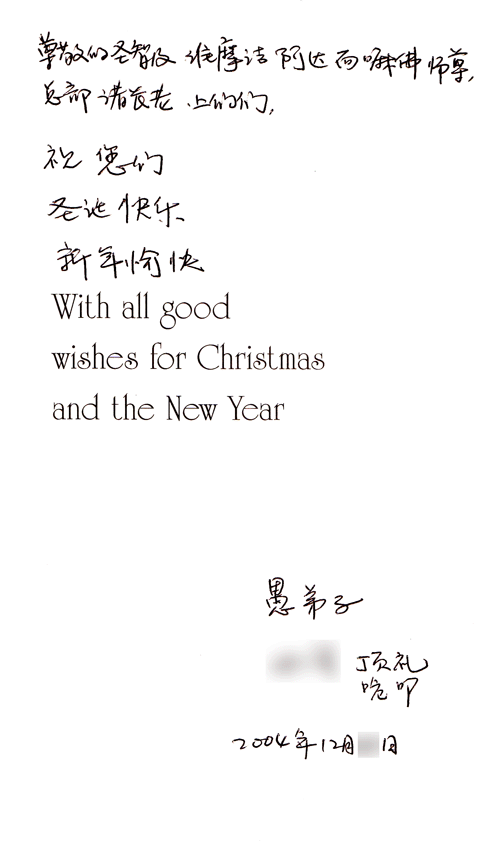 尊敬的圣智及维摩诘阿达而嘛佛师尊，
总部诸长老、上师们，
祝您们
圣诞快乐、
新年愉快
With all good
wishes for Christmas
and the New Year
愚弟子
顶礼
跪叩
2004年12月 日